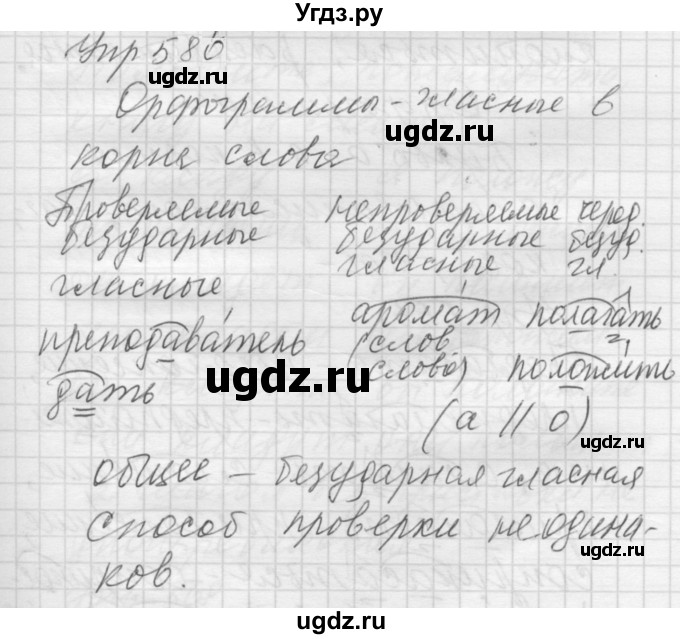 Угдз.ру
Упр 580
Орфограммы - гласные в
корне слова
Проверяемые непроверяемые черед.
безударные безударные безуд.
гласные гласные гл.
преподаватель аромат полагать
дать (слов. слово) положить
(а // о)
общее – безударная гласная
способ проверки неодина-
ков.
ugdz.ru
ugdz.ru
ugdz.ru
ugdz.ru
ugdz.ru
ugdz.ru
ugdz.ru